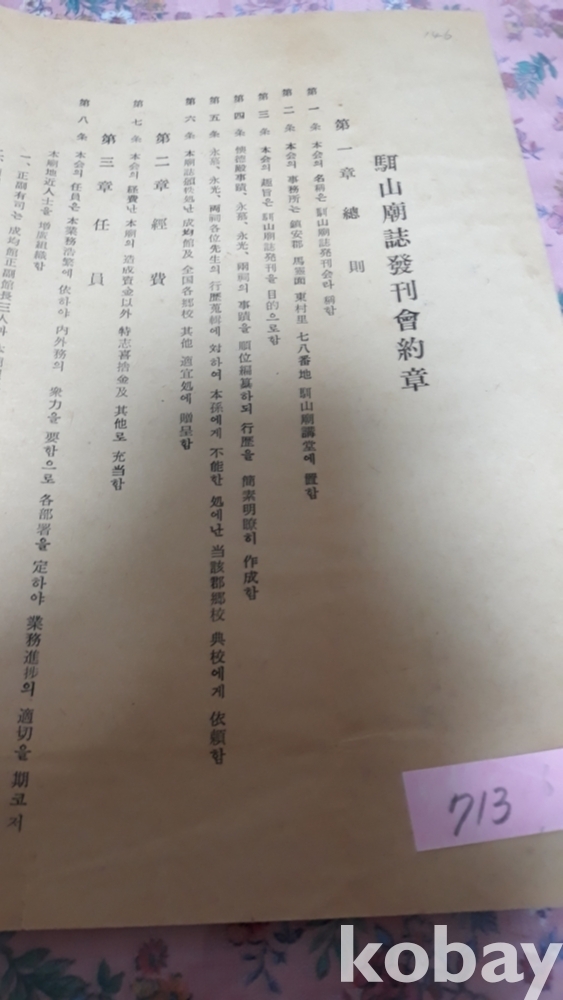 146
駬山廟誌發刊會約章
第一章 總則
第一条 本会의 名稱은 駬山廟誌発刊会라 稱함
第二条 本会의 事務所는 鎮安郡 馬靈面 東村里 七八番地 駬山廟講堂에 置함
第三条 本会의 趣旨은 駬山廟誌発刊을 目的으로함
第四条 懐德殿事蹟、永慕、永光、兩祠의 事蹟을 順位編纂하되 行歷을 簡素明瞭히 作成함
第五条 永慕、永光、両祠各位先生의 行歷蒐輯에 対하여 本孫에게 不能한 処에난 当該郡鄕校 典校에게 依頼함
第六条 本廟誌頒秩処난 成均館及 全国各鄕校 其他 適宜処에 贈呈함
第二章 經費
第七条 本会의 経費난 本廟의 造成資金以外 特志喜捨金及 其他로 充当함
第三章 任員
第八条 本会의 任員은 本業務浩繁에 依하야 內外務의 衆力을 要함으로 各部署을 定하야 業務進捗의 適切을 期코저
本廟地近人士을 增広組織함
一、正副有司는 成均館正副館長三人과
713
kobay